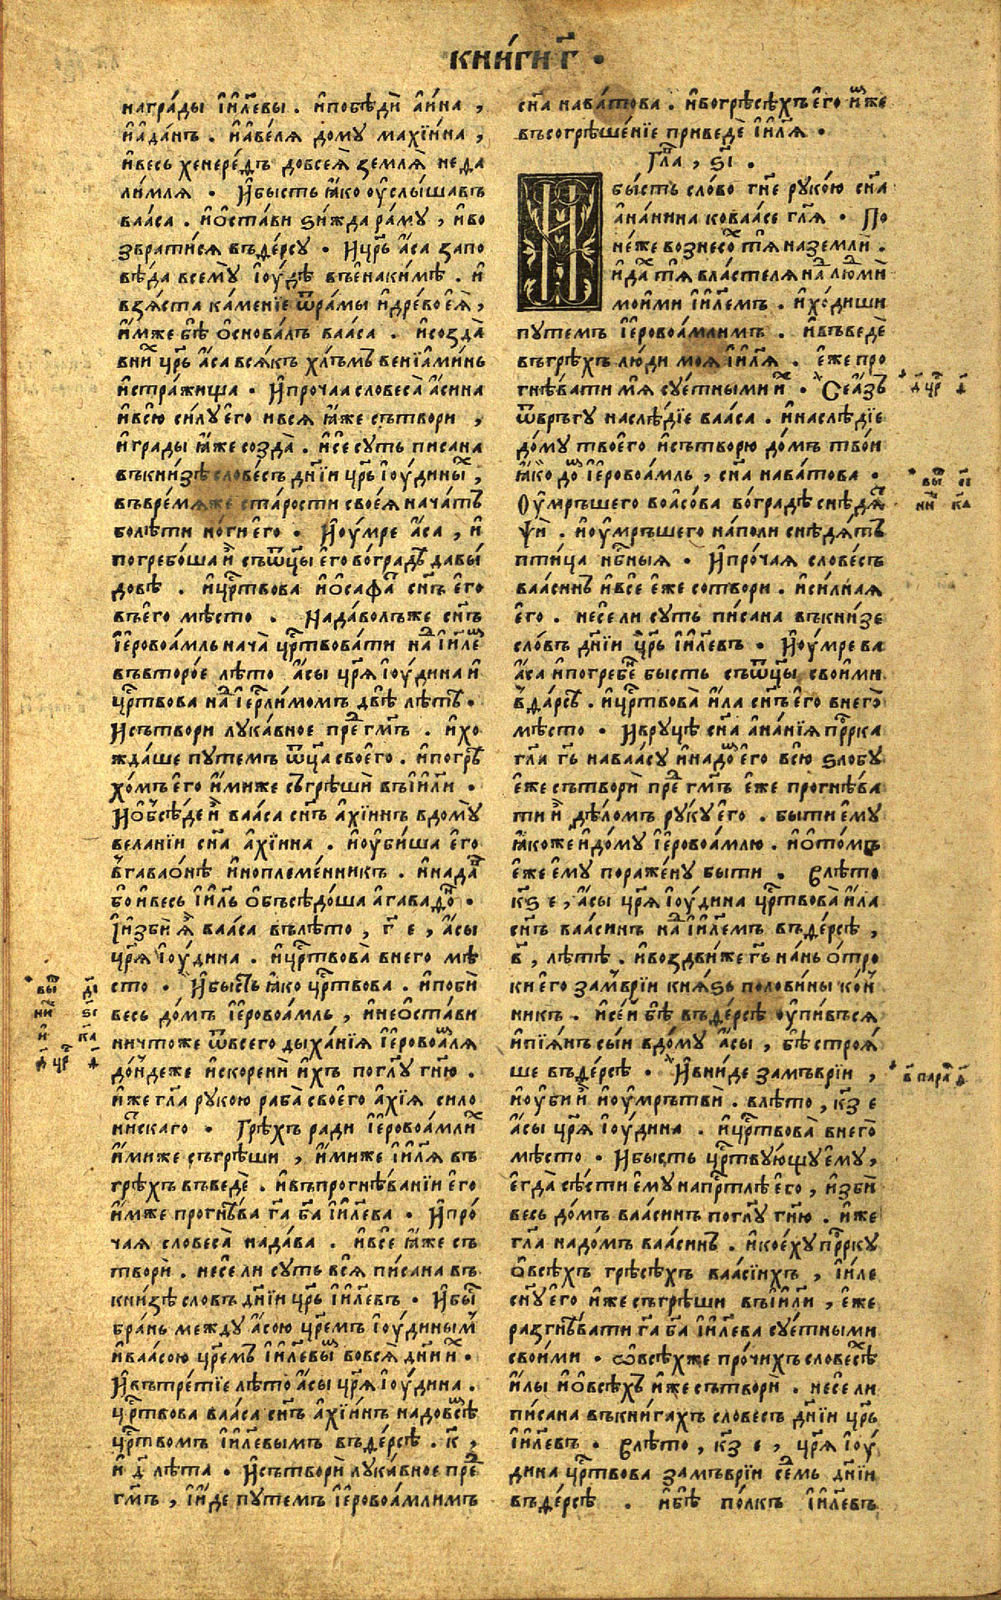 КНИ́ГИ Г҃ .
награ́ды і҆и҃левы . и҆побѣдѝ а҆и́на ,
и҆ада́нъ . и҆а҆ве́лѧ дому махі́ина ,
и҆весь хенере́дъ добсеѧ̀ землѧ̀ неѳа
ли́млѧ . И҆бысть ꙗ҆́ко оу҆слы́шавъ
ваа́са . и҆ѻ҆ста́ви ѕи́жда ра́му , и҆во
звратисѧ въде́рсу . И҆цр҃ь а҆́са запо
вѣ́да всемꙋ̀ і҆оу́дѣ въе҆накимѣ . и҆
взѧ́ста ка́меніе ѿра́мы и҆дре́вое҆ѧ̀ ,
и҆́мже бѣ̀ ѻ҆снова́лъ ваа́са . и҆созда̀
вни́х цр҃ь а҆́са всѧ́къ хлъмъ веніѧ́минь
и҆стра́жища . И҆про́чаа словеса̀ а҆́сина
и҆всю̀ си́лу е҆го̀ и҆всѧ̀ ꙗ҆́же сътвори̂ ,
и҆гра́ды ꙗ҆́же созда̀ . и҆се́ суть пи́сана
въкни́зѣ слове́съ дн҃іи цр҃ь і҆оу́дины́х ,
въвре́мѧже ста́рости своеѧ̀ нача́тъ
болѣ́ти но́гие҆го̀ . И҆оу́мре а҆́са , и҆
погребо́ша и҆̀ съѿц҃ы е҆го̀ во́градѣ давы́
довѣ . и҆цр҃твова и҆ѻ҆саѳа́ сн҃ъ е҆го̀
въе҆го̀ мѣ́сто . Нада́волъже сн҃ъ
і҆еровоа́мль нача̀ цр҃твова́ти на́д і҆и҃лем
въвторо́е лѣ́то а҆́сы цр҃ѧ̀ і҆оу́дина и҆
цр҃твова на́д і҆ер҃ли́момъ двѣ̀ лѣ́тѣ .
И҆сътвори̂ лука́вное пре́д гм҃ъ . и҆хо
жда́ше путе́мъ ѿц҃а своего̀ . и҆погрѣ
хо́мъ е҆го̀ и҆́миже съгрѣши̂ въі҆и҃ли .
И҆ѻ҆бсѣ́де и҆̀ ваа́са сн҃ъ а҆хі́инъ вдомꙋ̀
велані́и сн҃а а҆хі́ина . и҆оу҆би́ша е҆го̀
в҆гаваѻ́нѣ и҆нопле́менникъ . и҆нада́в
бо и҆весь і҆и҃ль ѻ҆бъсѣдо́ша а҆гаваѳо́н .
І҆изби̂ ѧ҆̀ ваа́са въ лѣ́то , г҃ е , а҆́сы
цр҃ѧ̀ і҆оу́дина . и҆цр҃твова̀ внего̀ мѣ́
сто . И҆бысть ꙗ҆́ко цр҃твова . и҆поби̂
весь до́мъ і҆еровоа́мль , и҆неѻ҆ста́ви
ничто́же ѿвсего̀ дыха́ніѧ і҆еровоа́млѧ
до́ндеже и҆скорени̂ и҆́хъ поглу гн҃ю .
и҆́же гл҃а руко́ю раба̀ своего̀ а҆хі́ѧ сило
ни́нскаго . Грѣхъ ра́ди і҆еровоа́млих
и҆́миже съгрѣши , и҆́миже і҆и҃лѧ въ
грѣхъ въведѐ . и҆въпрогнѣва́ніи е҆го̀
и҆́мже прогнѣ́ва г҃а б҃а і҆и҃лева . И҆про́
чаѧ словеса̀ нада́ва . и҆всѐ ꙗ҆́же съ
твори̂ . несе́ ли суть всѧ̀ пи́сана въ
кни́зѣ словъ дн҃іи цр҃ь і҆и҃левъ . И҆бы́сть
бра́нь между а҆́сою цр҃емъ і҆оу́динымъ
и҆ваа́сою цр҃емъ і҆и҃левы́м вовсѧ̀ дн҃и и҆́х .
И҆вътре́тіе лѣ́то а҆́сы цр҃ѧ̀ і҆оу́дина .
цр҃твова ваа́са сн҃ъ а҆хі́инъ надовсѣ́м
цр҃твомъ і҆и҃левымъ въде́рсѣ . к҃ ,
и҆ д҃ лѣ́та . И҆сътвори̂ лука́вное пре́д
гм҃ъ , і҆и́де путе́мъ і҆еровоа́млимъ
сн҃а нава́това . и҆вогрѣсѣ́хъ е҆го̀ и҆́м же
въсогрѣше́ніе приведѐ і҆и҃лѧ .
Гла́в , ѕ҃і .
И҆бы́сть сло́во гн҃е руко́ю сн҃а
а҆на́нина коваа́се гл҃ѧ . По
не́же вознесо́х тѧ̀ наземли .
и҆да́х тѧ̀ власте́лѧ на́д лю́дми̂
мои́ми і҆и҃лемъ . и҆хо́диши
путе́мъ і҆еровоа́млимъ . и҆въведѐ
въгрѣ́хъ лю́ди моѧ̀ і҆и҃лѧ . е҆́же про
гнѣвати мѧ̀ суе́тными и҆́х . Се а҆́зъ
ѿвръгу наслѣ́діе ваа́са . и҆наслѣ́діе
до́му твоего̀ и҆сътворю̀ до́мъ тво́и
ꙗ҆́ко до́м і҆еровоа́мль , сн҃а нава́това .
Оу҆мръшего воасо́ва во́градѣ снѣдѧ́т
ѱѝ . и҆оу҆мръшего на́поли снѣдѧ́тъ
пти́ца нб҃ныѧ . И҆про́чаѧ слове́съ
ваа́синъ и҆всѐ е҆́же сотвори . и҆си́лнаѧ
е҆го̀ . несе́ ли суть пи́сана въкни́зе
сло́въ дн҃іи цр҃ь і҆и҃левъ . И҆оу́мре ва
а҆́са и҆погребе́н бысть съѿц҃ы свои́ми
вде́рсѣ . и҆цр҃твова̀ и҆́ла сн҃ъ е҆го̀ внего̀
мѣ́сто . И҆вруцѣ̀ сн҃а а҆на́ніѧ прⷪ҇рка
гл҃а гь҃ наваа́су и҆надо́м е҆го̀ всю ѕло́бу
е҆́же сътвори̂ пре́д гм҃ъ е҆́же прогнѣва
ти и҆̀ дѣ́ломъ рꙋкꙋ е҆го̀ . бы́ти е҆му
ꙗ҆́коже и҆до́му і҆еровоа́млю . и҆ѻ҆то́мъ
е҆́же е҆му̀ пораже́ну бы́ти . Влѣто
к҃ѕ е , а҆́сы цр҃ѧ̀ і҆оу́дина цр҃твова̀ и҆́ла
сн҃ъ ваа́синъ на́д і҆и҃лемъ въде́рсѣ ,
в҃ , лѣ́тѣ . и҆воздви́же гь҃ нань ѻ҆́тро
ки е҆го̀ замврі́и кнѧ́зь полови́ны ко́и
никъ . и҆се́и бѣ̀ въде́рсѣ оу҆пи́всѧ
и҆пі́ѧнъ сы́и вдо́му а҆́сы , бѣ строѧ́
ше въде́рсѣ . И҆вни́де замъврі́и ,
и҆оу҆би̂ и҆̀ и҆оу҆мрътви̂ . влѣ́то , к҃з е
а҆́сы цр҃ѧ̀ і҆оу́дина . и҆цр҃твова̀ внего̀
мѣ́сто . И҆бысть цр҃тву́ющу е҆му̀ ,
е҆гда̀ сѣ́сти е҆му̀ напр҃тлѣ е҆го̀ , и҆зби̂
весь до́мъ ваа́синъ поглу гн҃ю . и҆́же
гл҃а надо́мъ ваа́синъ . и҆ко е҆ху прⷪ҇рку
ѻ҆всѣ́хъ грѣсѣ́хъ ваасі́ихъ , и҆и́ле
сн҃у е҆го̀ и҆́же съгрѣши въі҆и҃ли , е҆́же
разгнѣвати г҃а б҃а і҆и҃лева суе́тными
свои́ми . ѡ҆всѣ́хже про́чихъ слове́сѣх
и҆́лы и҆ѻ҆всѣ́хъ и҆́же сътвори . несе́ ли
пи́сана въкни́гахъ слове́съ дн҃іи цр҃ь
і҆и҃левъ . Влѣто , к҃з е , цр҃ѧ̀ і҆оу́
дина цр҃твова замъврі́и се́дмь дн҃іи
въде́рсѣ . и҆бѣ̀ по́лкъ і҆и҃левъ